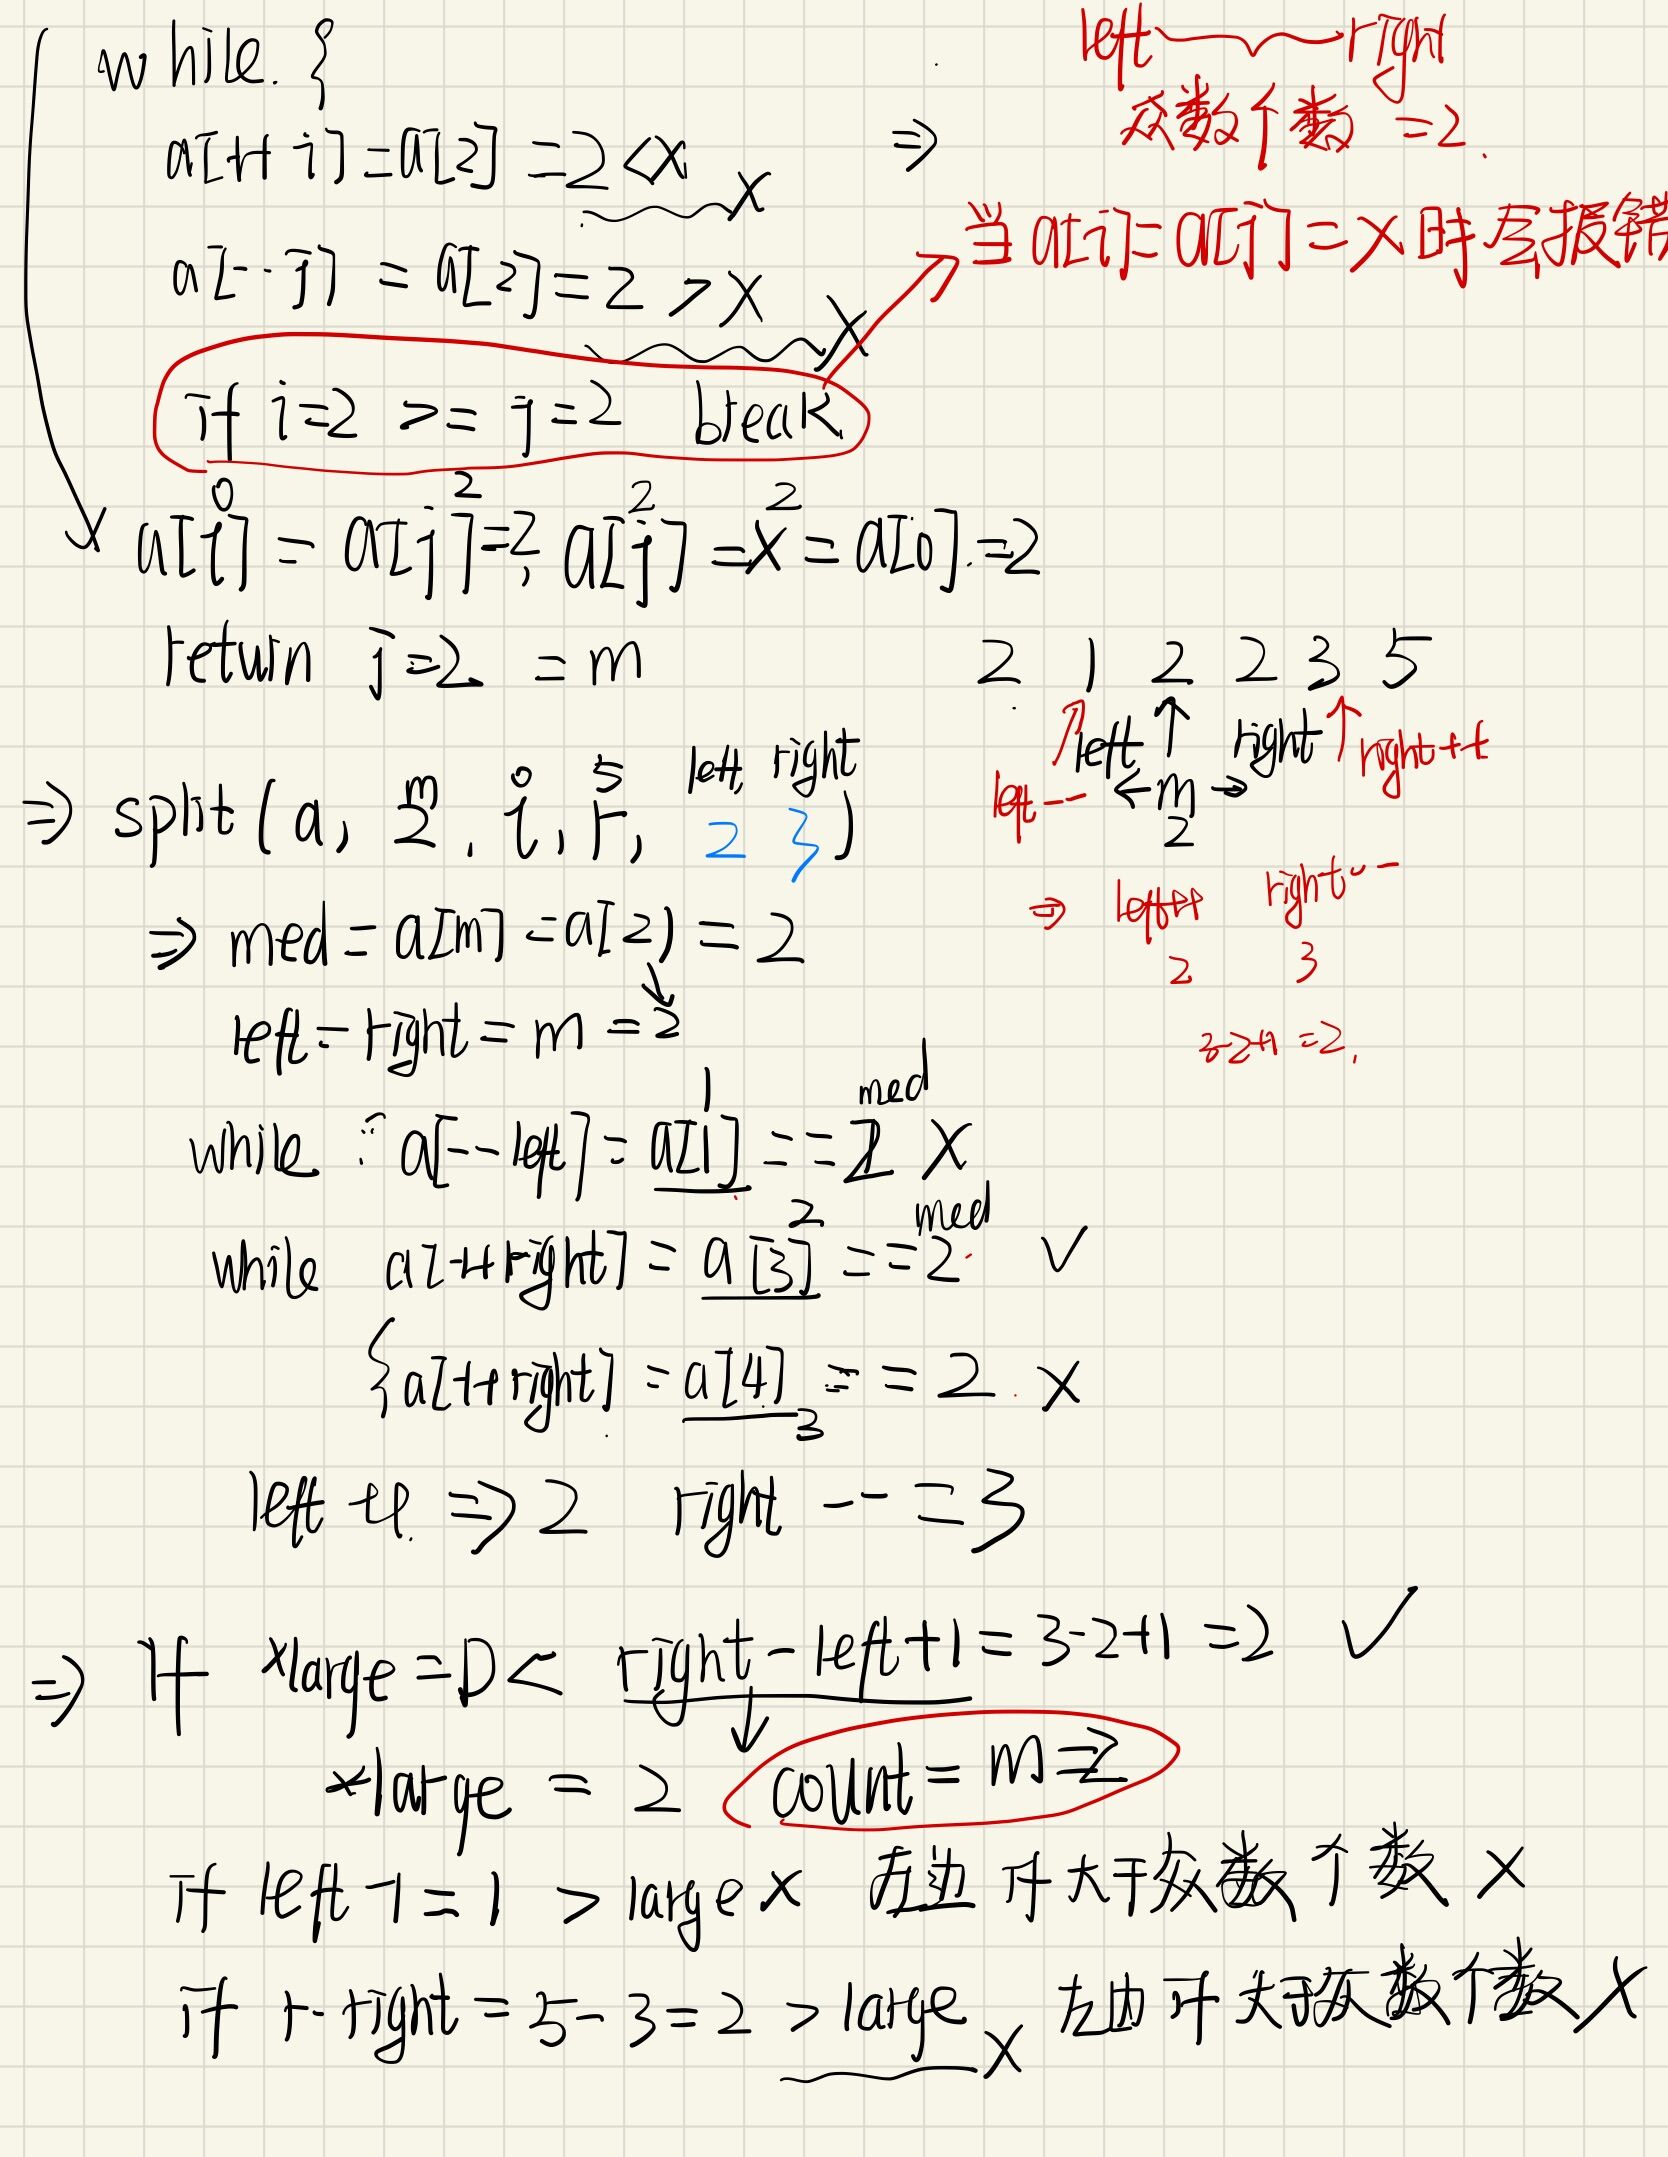 while {
left right
众数个数 =2
a[++i]=a[2] =2<x x
⇒
当a[i]=a[j]=x时会报错
a[--j] = a[2]=2 >x x
if i=2 >= j=2 break
0 2 2 2
a[i] = a[j]=2, a[j] =x = a[0]=2
return j=2 =m
2 1 2 2 3 5
left ↑ right
left-- ←m→ right++
2
m 0 5 left right
⇒ split(a, 2, i, r, 2 3)
⇒ left++ right--
2 3
3-2+1=2
⇒ med = a[m] =a[2] = 2
left = right = m = 2
1 med
while a[--left] = a[1] == 2 x
2 med
while a[++right] = a[3] == 2 ✓
{a[++right] = a[4] == 2 x
3
left ++ ⇒ 2 right -- = 3
⇒ If *large =0< right-left+1=3-2+1=2 ✓
*large = 2 count = m=2
if left-1=1 >large x 左边 大于众数个数 x
if r-right = 5-3=2 >large x 大于众数个数 x